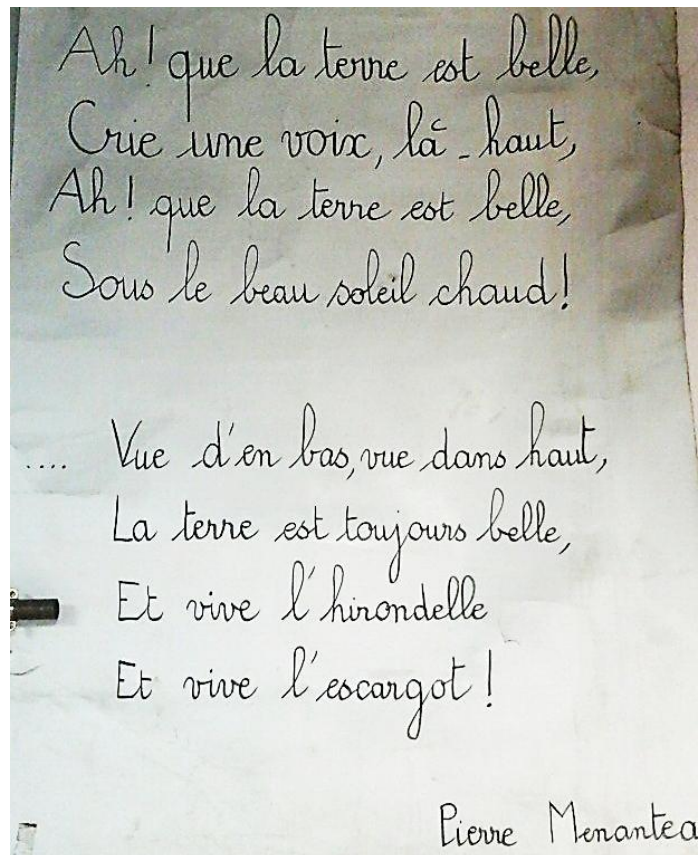 Ah! que la terre est belle,
Crie une voix, là-haut,
Ah! que la terre est belle,
Sous le beau soleil chaud!
.... Vue d'en bas, vue dans haut,
La terre est toujours belle,
Et vive l'hirondelle
Et vive l'escargot!
Pierre Menantea